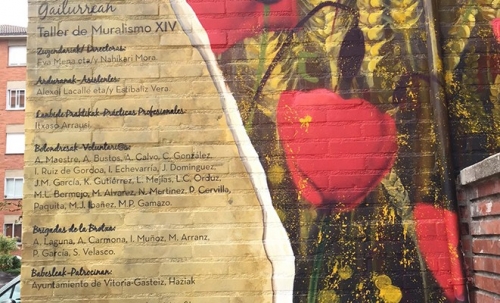 Gailurrean
Taller de Muralismo XIV
Zuzendariak/Directoras:
Eva Mena eta/y Nahikari Mora
Arduradunak-Asistentes:
Alexei Lacalle eta/y Estibaliz Vera
Lanbede Praktikak-Prácticas Profesionales:
Itxaso Arrausi
Bolondresak-Voluntari@s:
A. Maestre, A. Bustos, A. Calvo, C. González,
I. Ruiz de Gordoa, I. Echevarría, J. Dominguez,
J.M. García, K. Gutiérrez, L. Mejías, L.C. Orduz,
M.L. Bermejo, M. Alvarez, N. Mertinez, P. Cervilla,
Paquita, M.J. Ibañez, M.P. Gamazo.
Brigadas de la Brotxa:
A. Laguna, A. Carmona, I. Muñoz, M. Arranz,
P. García, S. Velasco.
Babesleak-Patrocinan:
Ayuntamiento de Vitoria-Gasteiz, Haziak